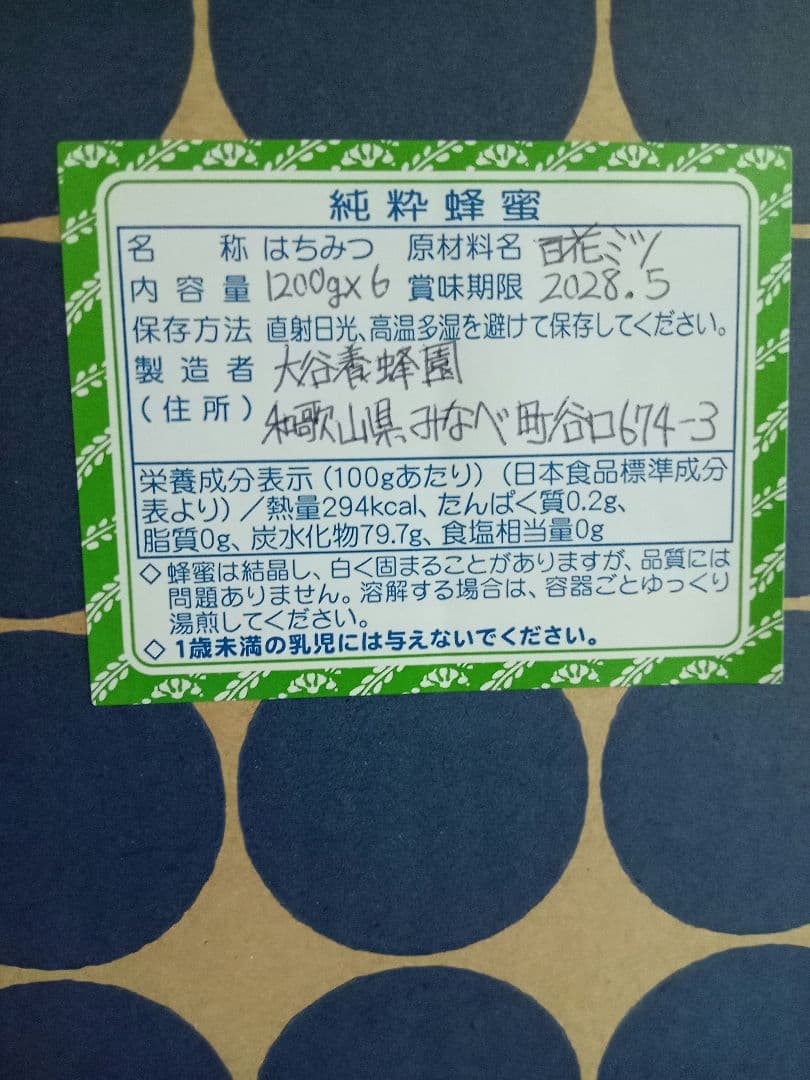 純粋蜂蜜
名称 はちみつ 原材料名 百花ミツ
内容量 1200g×6 賞味期限 2028.5
保存方法 直射日光、高温多湿を避けて保存してください。
製造者 大谷養蜂園
(住所) 和歌山県、みなべ町谷口674-3
栄養成分表示(100gあたり)(日本食品標準成分
表より)/熱量294kcal、たんぱく質0.2g、
脂質0g、炭水化物79.7g、食塩相当量0g
◇ 蜂蜜は結晶し、白く固まることがありますが、品質には
問題ありません。溶解する場合は、容器ごとゆっくり
湯煎してください。
◇ 1歳未満の乳児には与えないでください。